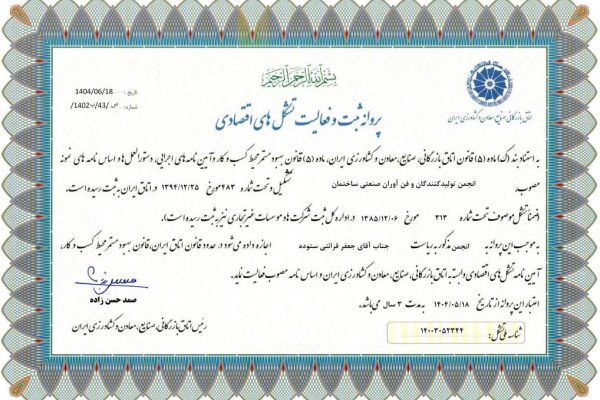 بسم الله الرحمن الرحیم
تاریخ: 1404/06/18
شماره: 1402/43/ص
اتاق بازرگانی، صنایع، معادن و کشاورزی ایران
پروانه ثبت و فعالیت تشکل های اقتصادی
به استناد بند (ک) ماده (۵) قانون اتاق بازرگانی، صنایع، معادن و کشاورزی ایران، ماده (۵) قانون بهبود مستمر محیط کسب و کار و آیین نامه های اجرایی، دستورالعمل ها و اساس نامه های نمونه
مصوب، انجمن تولیدکنندگان و فن آوران صنعتی ساختمان تشکیل و تحت شماره ۴۸۳ مورخ ۱۳۹۴/۱۲/۲۵ در اتاق ایران به ثبت رسیده است.
(ضمناً تشکل موصوف تحت شماره ۳۱۳ مورخ ۱۳۸۵/۱۲/۰۶ در اداره کل ثبت شرکت ها و موسسات غیرتجاری نیز به ثبت رسیده است).
به موجب این پروانه به انجمن مذکور به ریاست جناب آقای جعفر قرائتی ستوده اجازه داده می شود در حدود قانون اتاق ایران، قانون بهبود مستمر محیط کسب و کار،
آیین نامه تشکل های اقتصادی وابسته به اتاق بازرگانی، صنایع، معادن و کشاورزی ایران و اساس نامه مصوب فعالیت نماید.
اعتبار این پروانه از تاریخ ۱۴۰۴/۰۵/۱۸ به مدت ۳ سال می باشد.
صمد حسن زاده
رئیس اتاق بازرگانی، صنایع، معادن و کشاورزی ایران
شناسه ملی تشکل: ۱۴۰۰۳۰۵۲۳۴۴